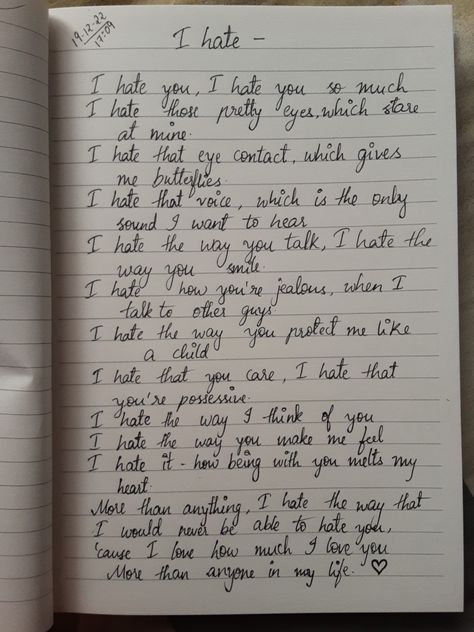 19.12.22
17:09
I hate -
I hate you, I hate you so much
I hate those pretty eyes, which stare
at mine.
I hate that eye contact, which gives
me butterflies.
I hate that voice, which is the only
sound I want to hear
I hate the way you talk, I hate the
way you smile.
I hate how you're jealous, when I
talk to other guys.
I hate the way you protect me like
a child
I hate that you care, I hate that
you're possessive.
I hate the way I think of you
I hate the way you make me feel
I hate it - how being with you melts my
heart.
More than anything, I hate the way that
I would never be able to hate you,
'cause I love how much I love you
More than anyone in my life. ♡